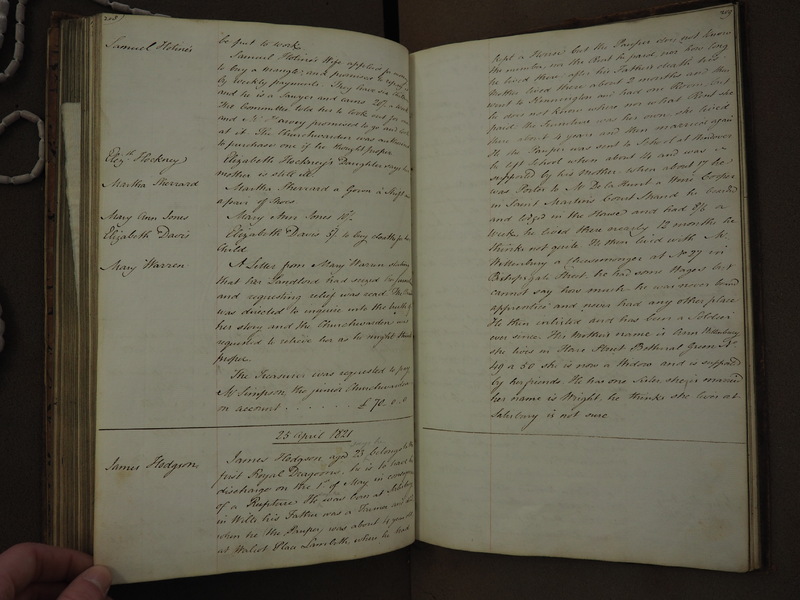 208
be put to work
Samuel Holmes
Samuel Holmes's Wife applied for money
to buy a mangle; and promises to repay it
by weekly payments. They have six children
and he is a Sawyer and earns 20/- a week
The Committee told her to look out for one
and promised to go and look
at it. The Churchwarden was authorized
to purchase one if he thought proper
Eliz.th Hockney
Elizabeth Hockney's Daughter says her
mother is still ill
Martha Sherrard
Martha Sherrard a Gown a Shift and
a pair of Shoes
Mary Ann Jones
Mary Ann Jones
Elizabeth Davis
Elizabeth Davis 5/- to buy cloaths for her
Child
Mary Warren
A Letter from Mary Warren stating
that her Landlord had seized her
and requesting relief was read.
was directed to enquire into the truth of
her story and the Churchwarden was
requested to relieve her as he might think
proper
The Treasurer was requested to pay
Mr Simpson the junior Churchwarden
on account . . . . . . £70.0.0
25 April 1821
James Hodgson
James Hodgson aged 23 belongs to the
first Royal Dragoons. he is to have his
discharge on the 1st of May in consequence
of a Rupture He was born at
in Wilts his Father was a
when he the Pauper was about 4 years old
at Walcot Place Lambeth where he had
209
kept a House but the Pauper does not know
the number, nor the Rent he paid nor how long
he lived there after his Father's death his
Mother lived there about 2 months and then
went to Kennington and had one Room, but
he does not know where nor what Rent she
paid the Furniture was her own, she lived
there about 4 years and then married again
He the Pauper was sent to School at
he left School when about 14 and was
supported by his Mother. when about 17 he
was Porter to Mr De la Hunt a Wine Cooper
in Saint Martins Court Strand he boarded
and lodged in the House and had 8/6 a
Week, he lived there nearly 12 months he
thinks not quite. He then lived with Mr
a Cheesemonger at No 27 in
Bishopsgate Street, he had some Wages but
cannot say how much. he was never bound
apprentice and never had any other place
He then enlisted and has been a Soldier
ever since. His Mother's name is Ann
she lives in Hare Street Bethnal Green No
49 or 50 she is now a Widow and is supported
by her friends. He has one Sister, she is married
her name is Wright, he thinks she lives at
Salisbury is not sure